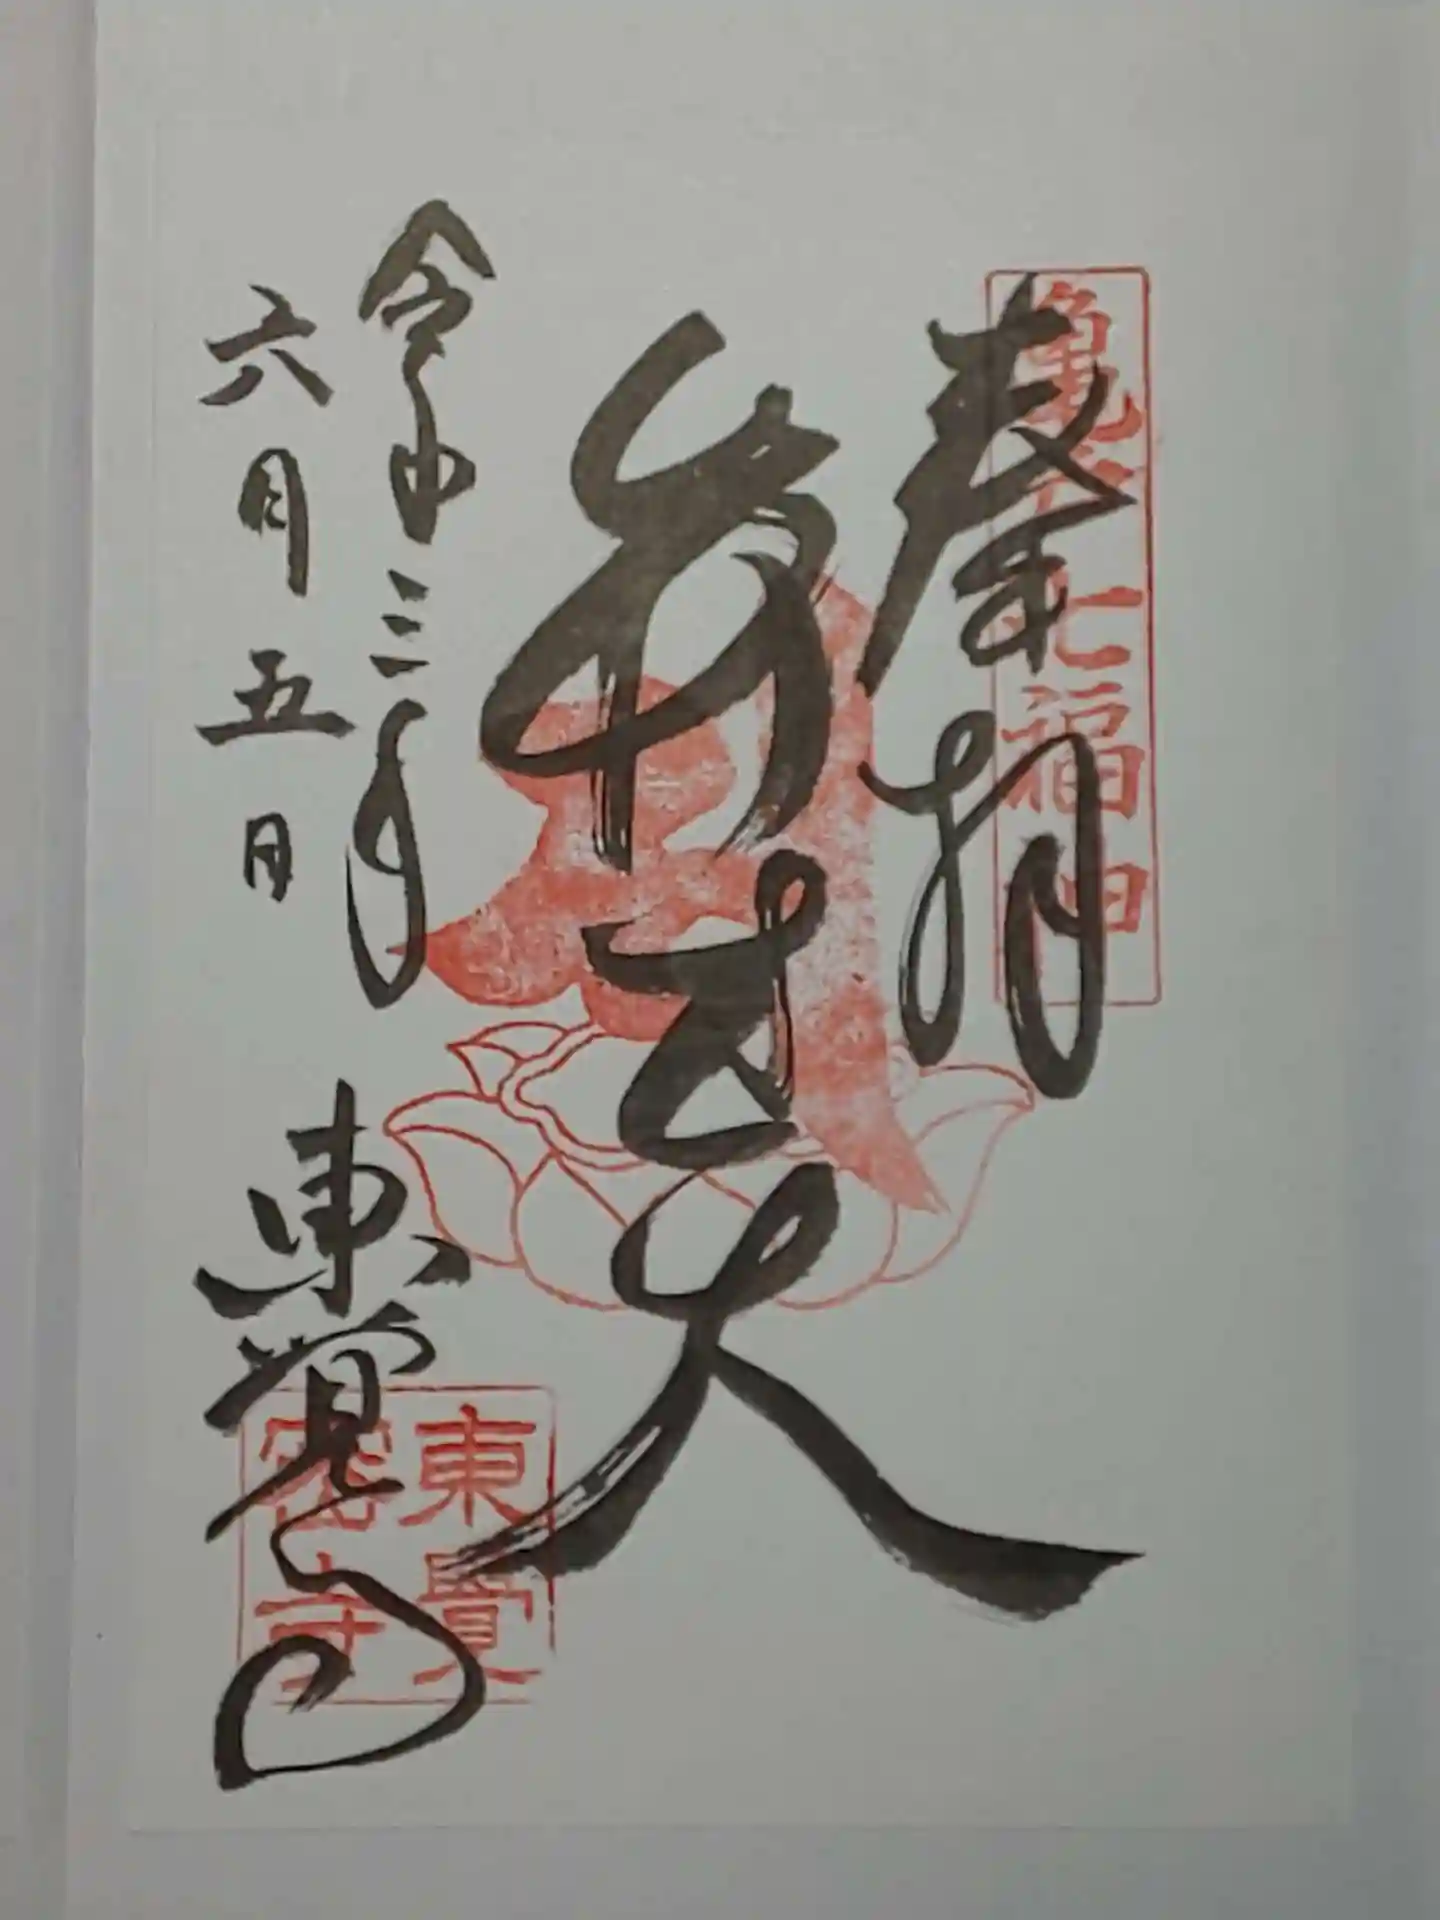 奉拝
亀戸七福神
弁才天
令和三年
六月五日
東覚寺
東覺
密寺